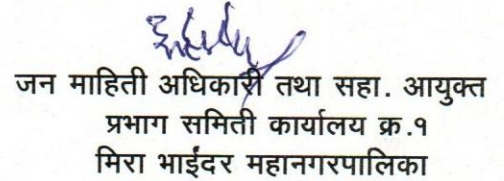 जन माहिती अधिकारी तथा सहा. आयुक्त
प्रभाग समिती कार्यालय क्र.१
मिरा भाईंदर महानगरपालिका